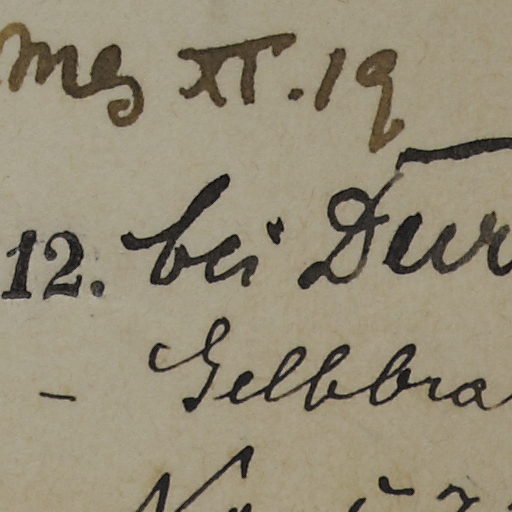 XI. 19
12. bei Dur
- Gelbbra